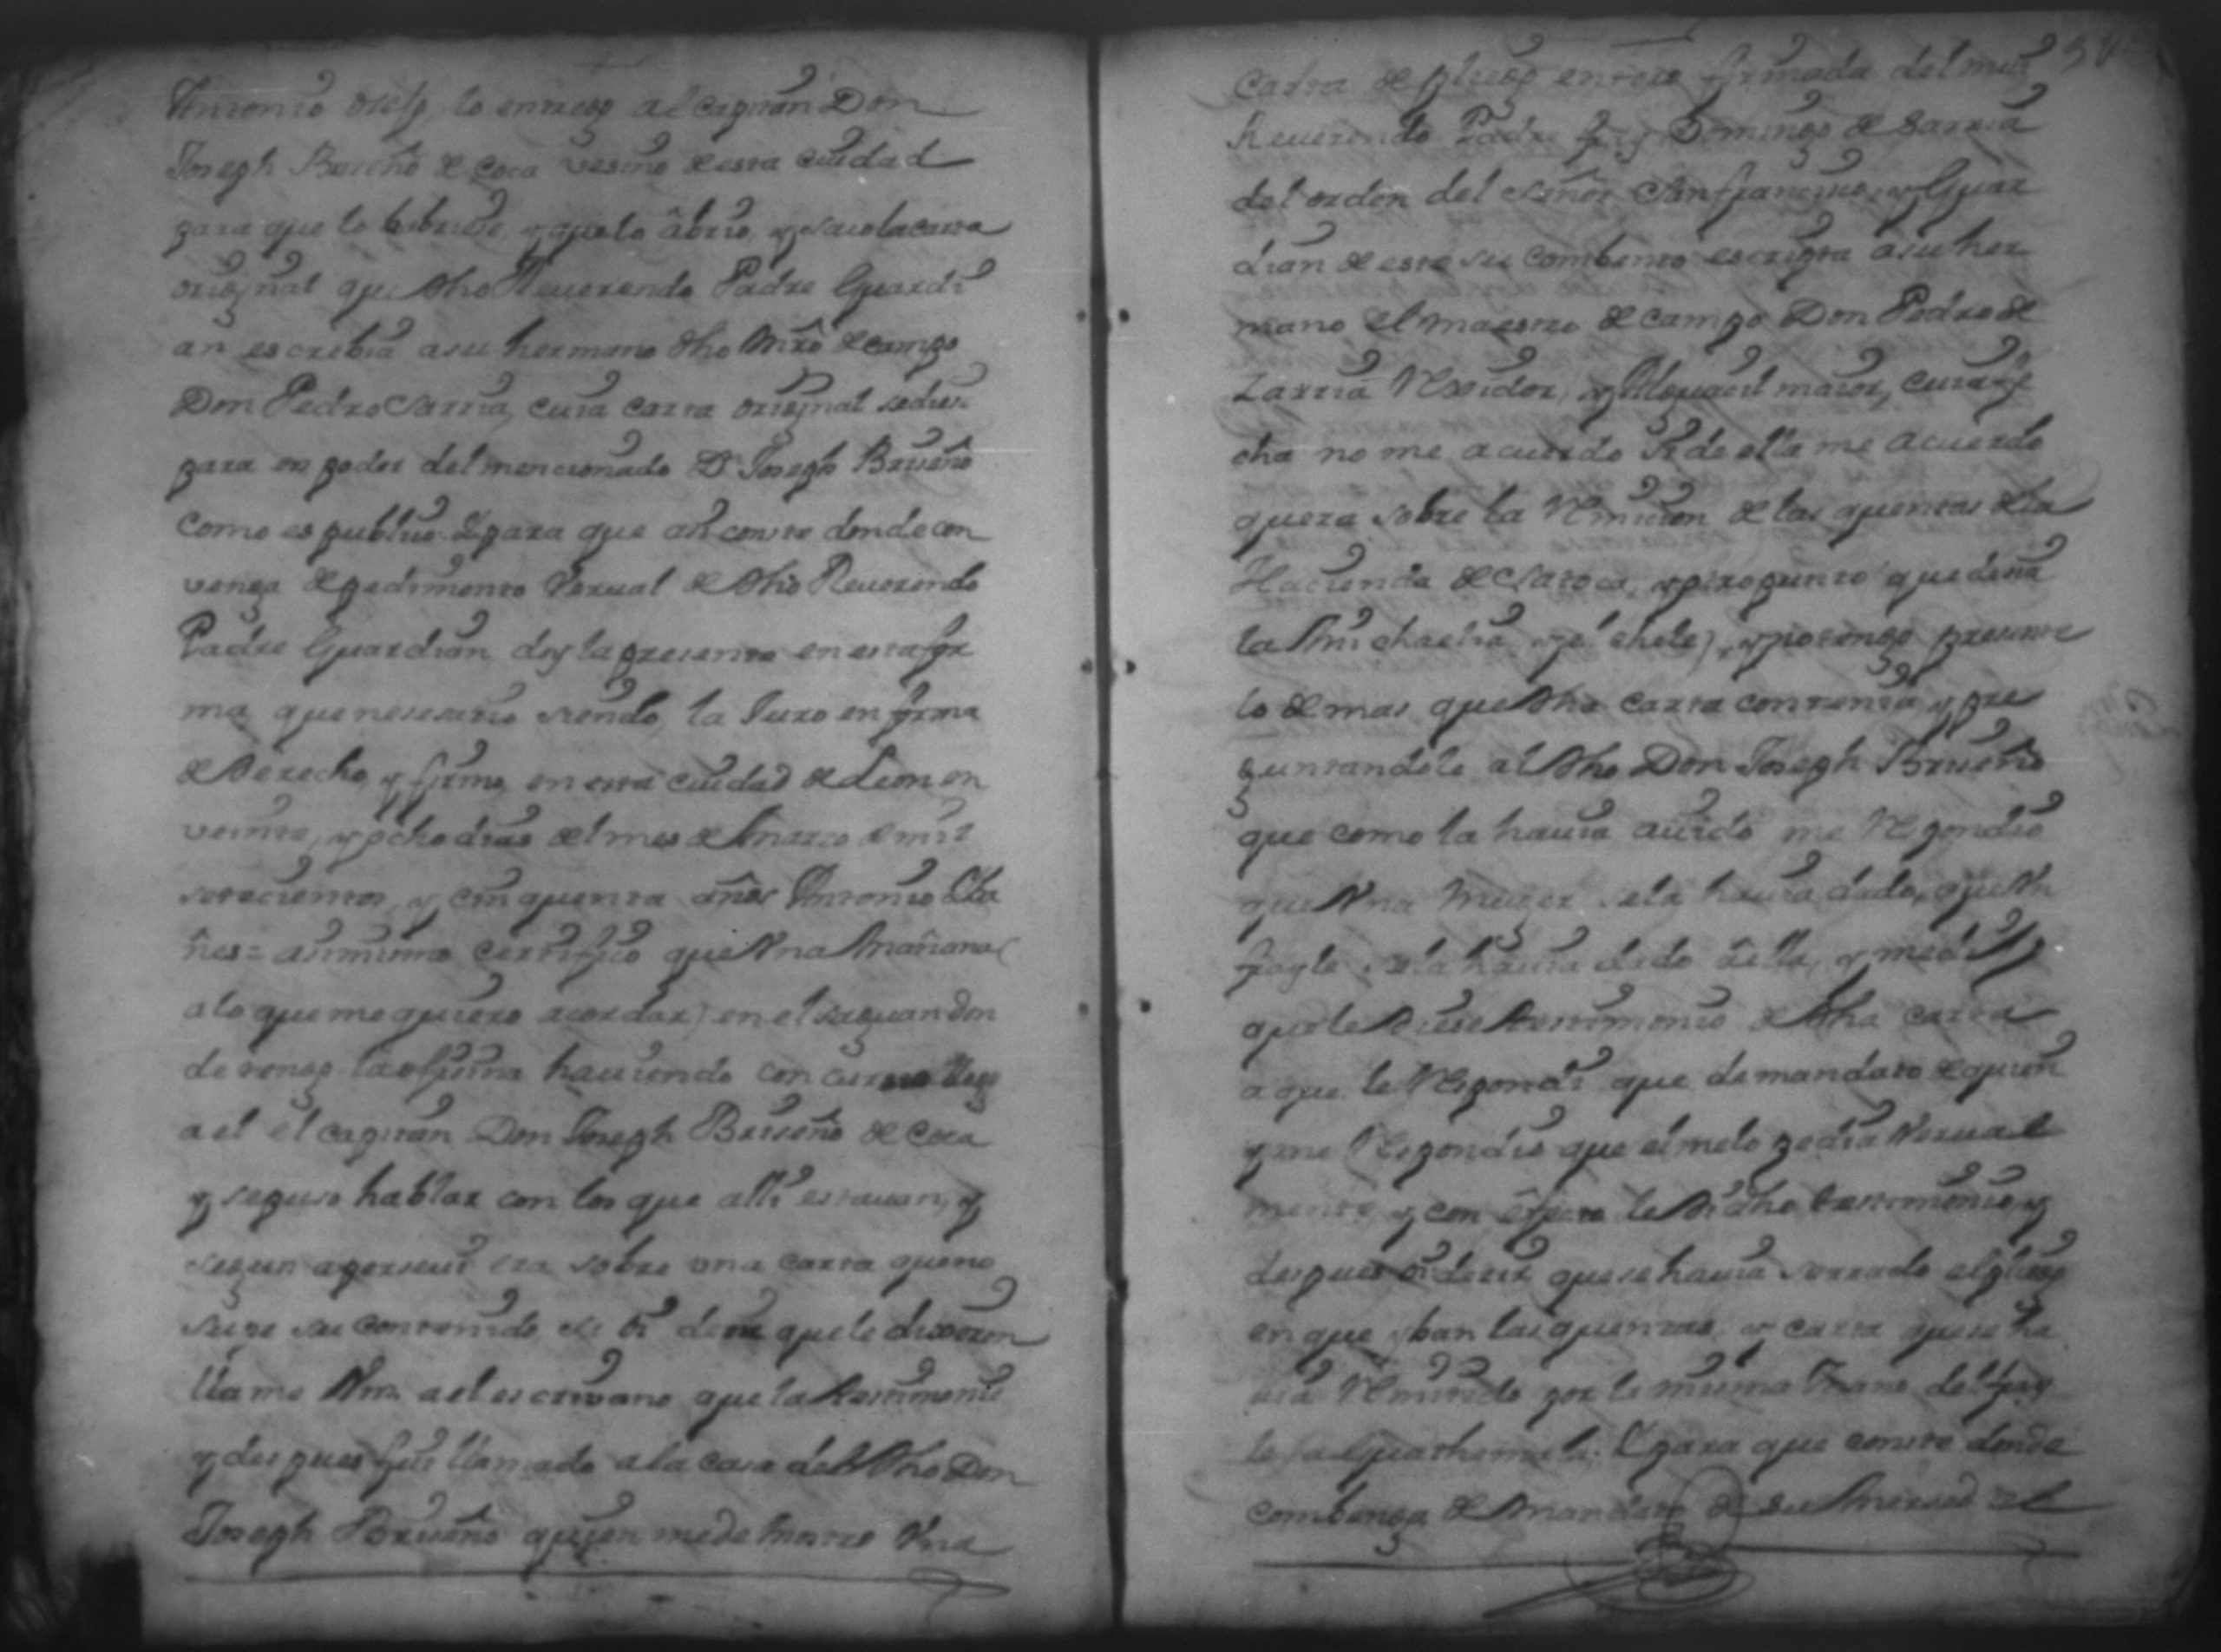 Antonio lo entrego al capitan Don
Joseph Briseño de Coca vesino de esta ciudad
para que lo abriese y que lo abrio, y saco la carta
original que dho Reuerendo Padre Guardi
an escrebia a su hermano dho Mro de campo
Don Pedro Sarria, cuia carta original
para en poder del mencionado Dn Joseph Briseño
como es publico Y para que asi conste donde con
venga de pedimento Verual de dho Reuerendo
Padre Guardian doy la presente en esta for
ma que nesesario siendo, la Juro en forma
de derecho, y firmo en esta ciudad de Leon en
veinte, y ocho dias del mes de Marzo de mil
setecientos, y cinquenta años Antonio Cha
ñes = asimismo certifico que Vna Mañana (
a lo que me quiero acordar) en el saguan don
de tengo la ofisina hauiendo concurso llego
a el el capitan Don Joseph Briseño de Coca
y se puso hablar con los que alli estauan, y
segun aperseui era sobre vna carta que no
supe su contenido, si oi desir que le dixeron
llame Vm. a el escrivano que la testimonie
y despues fui llamado a la casa del dho Don
Joseph Briseño quien me demostro Vna
carta de pliego entero firmada del mui
Reuerendo Padre fray Domingo de Sarria
del orden del Señor San francisco, y Guar
dian de este su combento escripta a su her
mano el maestro de campo Don Pedro de
Zarria Rexidor, y Alguacil maior, cuia fe
cha no me acuerdo si de ella me acuerdo
que era sobre la Remicion de las quentas de la
Hacienda de y otro punto que desia
la Michaelia y el chele), y no tengo presente
lo demas que dha carta contenia y pre
guntandole al dho Don Joseph Briseño
que como la hauia auido me Respondio
que Vna Muger se la hauia dado, o que Vn
frayle se la hauia dado a ella, y me dijo
que le diese testimonio de dha carta
a que le Respondi que de mandato de quien
y me Respondio que el me lo pedia Verual
mente y con efecto le di dho testimonio y
despues oi desir que se hauia serrado el pliego
en que iban las quentas, y carta que se ha
uia Remitido por la misma Mano del fray
le a Guathemala. Y para que conste donde
combenga de Mandato de su Mersed el